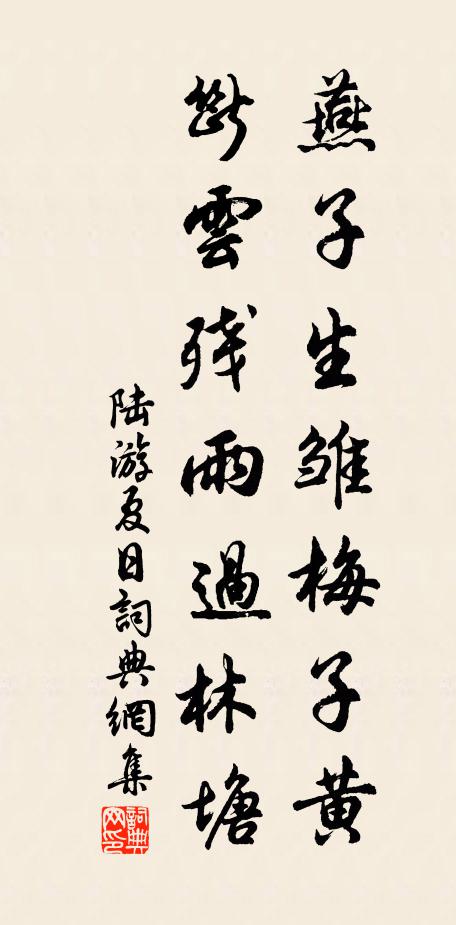 燕子生雏梅子黄
斷雲残雨過林塘
陆游夏日詞典網集
詞典网印